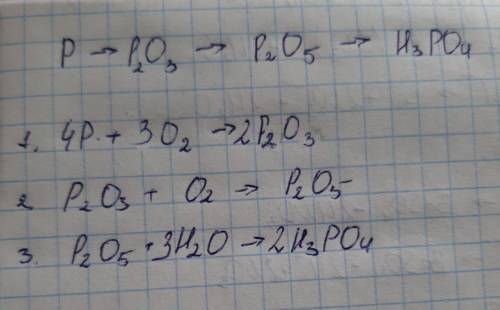 P → P₂O₃ → P₂O₅ → H₃PO₄
1. 4P + 3O₂ → 2P₂O₃
2 P₂O₃ + O₂ → P₂O₅
3. P₂O₅ + 3H₂O → 2H₃PO₄